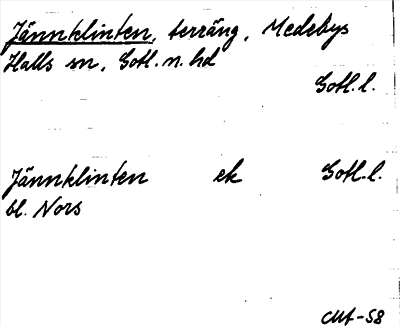 Jännklinten, terräng, Medebys
Halls sn, Gotl. n. hd
Gotl. l.
Jännklinten ek Gotl. l.
bl. Nors
CMA-58